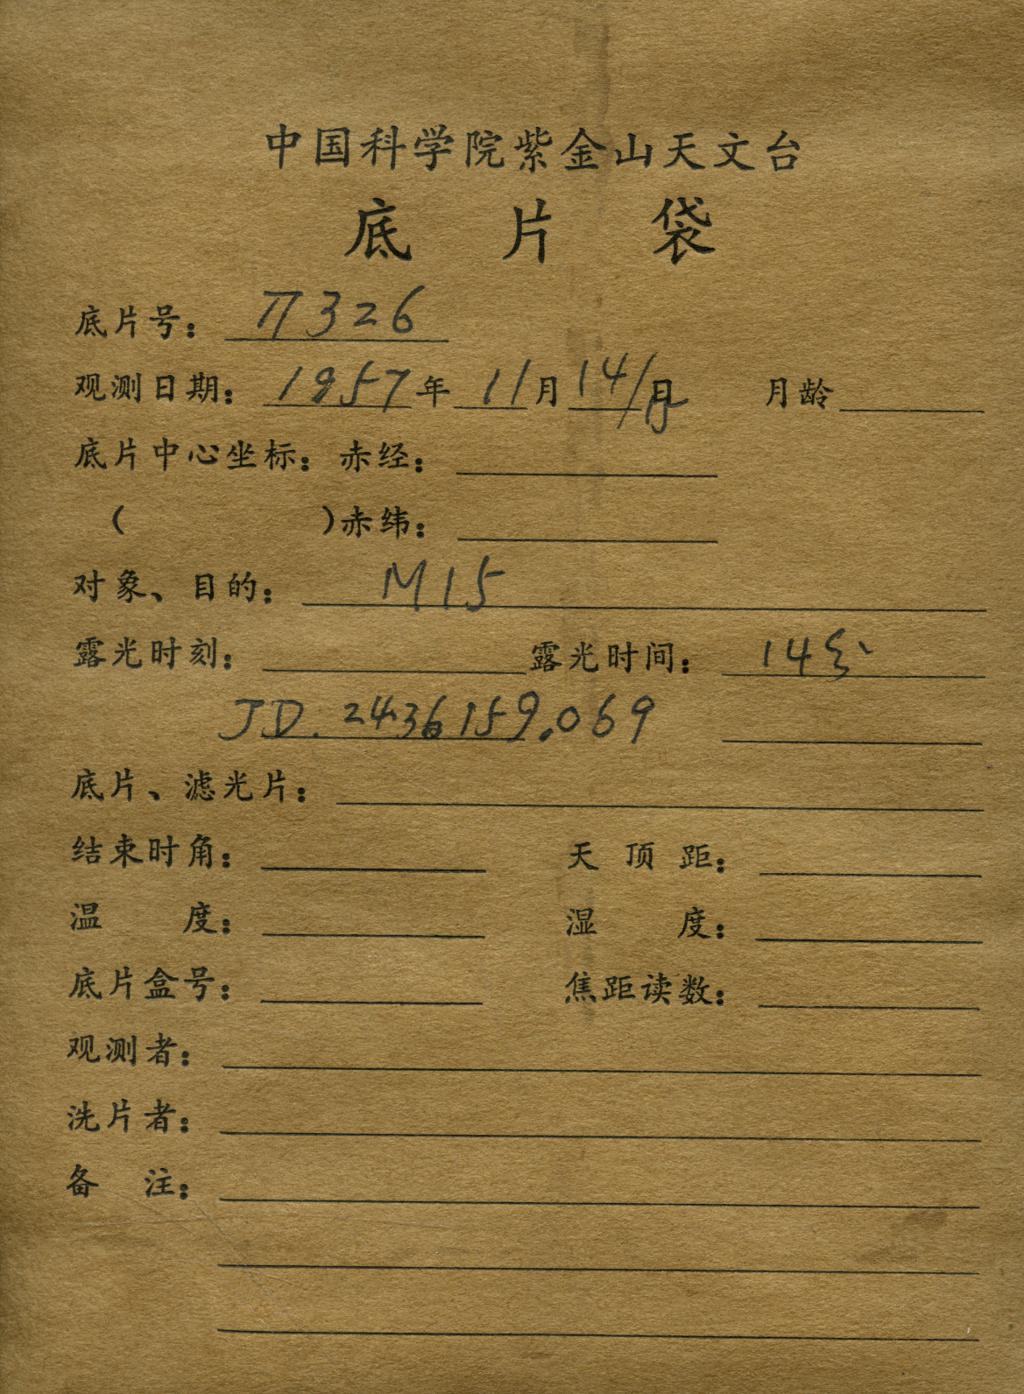 中国科学院紫金山天文台
底片袋
底片号: П326
观测日期: 1957年11月14/日 月龄
底片中心坐标: 赤经:
( )赤纬:
对象、目的: M15
露光时刻: 露光时间: 14分
JD. 2436159.069
底片、滤光片:
结束时角: 天顶距:
温度: 湿度:
底片盒号: 焦距读数:
观测者:
洗片者:
备注: